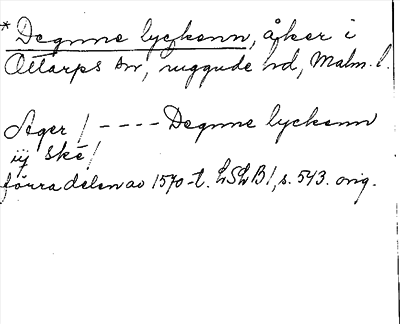 * Degnne lyckenn, åker i
Ottarps sn, ruggude hd, Malm. l.
Ager / - - - - Degnne lyckenn
iij ske /
förra delen av 1570-t. LSLB 1, s. 543. orig.